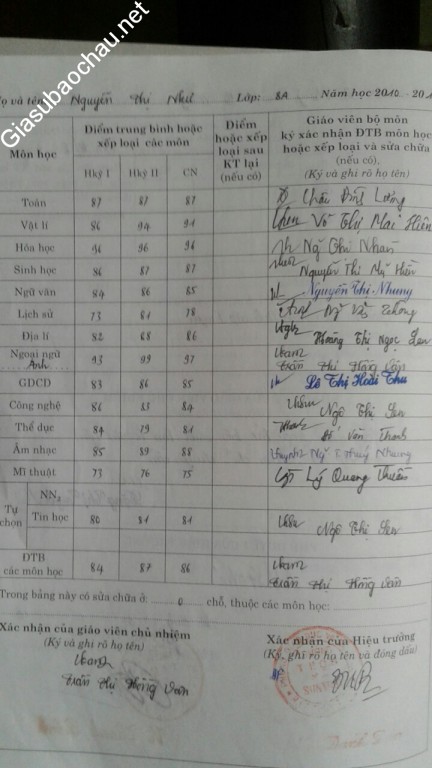 Giasubaochau.net
Họ và tên Nguyễn Thị Như Lớp: 8A Năm học 2010 - 201
Môn học
Điểm trung bình hoặc
xếp loại các môn
Hkỳ I Hkỳ II CN
Điểm
hoặc xếp
loại sau
KT lại
(nếu có)
Giáo viên bộ môn
ký xác nhận ĐTB môn học
hoặc xếp loại và sửa chữa
(nếu có),
(Ký và ghi rõ họ tên)
Toán 87 87 87 Châu Đình Lương
Vật lí 86 94 91 Võ Thị Mai Hiên
Hóa học 96 96 96 Ng Chí Nhan
Sinh học 86 87 87 Nguyễn Thị Mỹ Hiền
Ngữ văn 84 86 85 Nguyễn Thị Nhung
Lịch sử 73 81 78
Địa lí 82 88 86 Hoàng Thị Ngọc Lan
Ngoại ngữ Anh 93 99 97 Trần Thị Hồng Vân
GDCD 83 86 85 Lê Thị Hoài Thu
Công nghệ 86 83 84 Ngô Thị Len
Thể dục 84 79 81 Văn Thanh
Âm nhạc 85 89 88 Huỳnh Ng T Thúy Nhung
Mĩ thuật 73 76 75 Lý Quang Thuần
Tự
chọn
NN₂
Tin học 80 81 81 Ngô Thị Len
ĐTB
các môn học 84 87 86 Trần Thị Hồng Vân
Trong bảng này có sửa chữa ở: 0 chỗ, thuộc các môn học:
Xác nhận của giáo viên chủ nhiệm
(Ký và ghi rõ họ tên)
Trần Thị Hồng Vân
Xác nhận của Hiệu trưởng
(Ký, ghi rõ họ tên và đóng dấu)